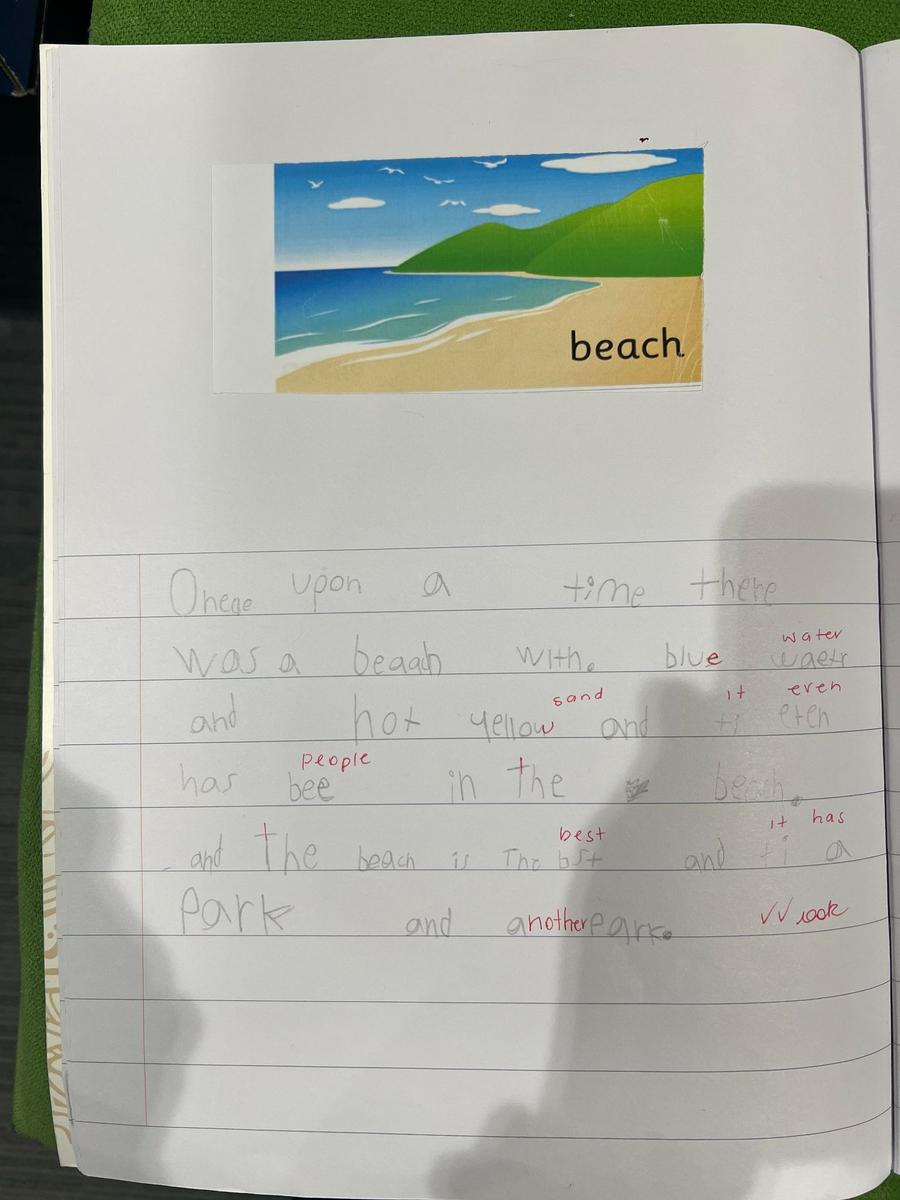 beach
Onece upon a time there
water
was a beaach with. blue waetr
sand it even
and hot yellow and ti eten
people
has bee in the beach.
best it has
and the beach is The bst and ti a
Park and another park. ✓✓